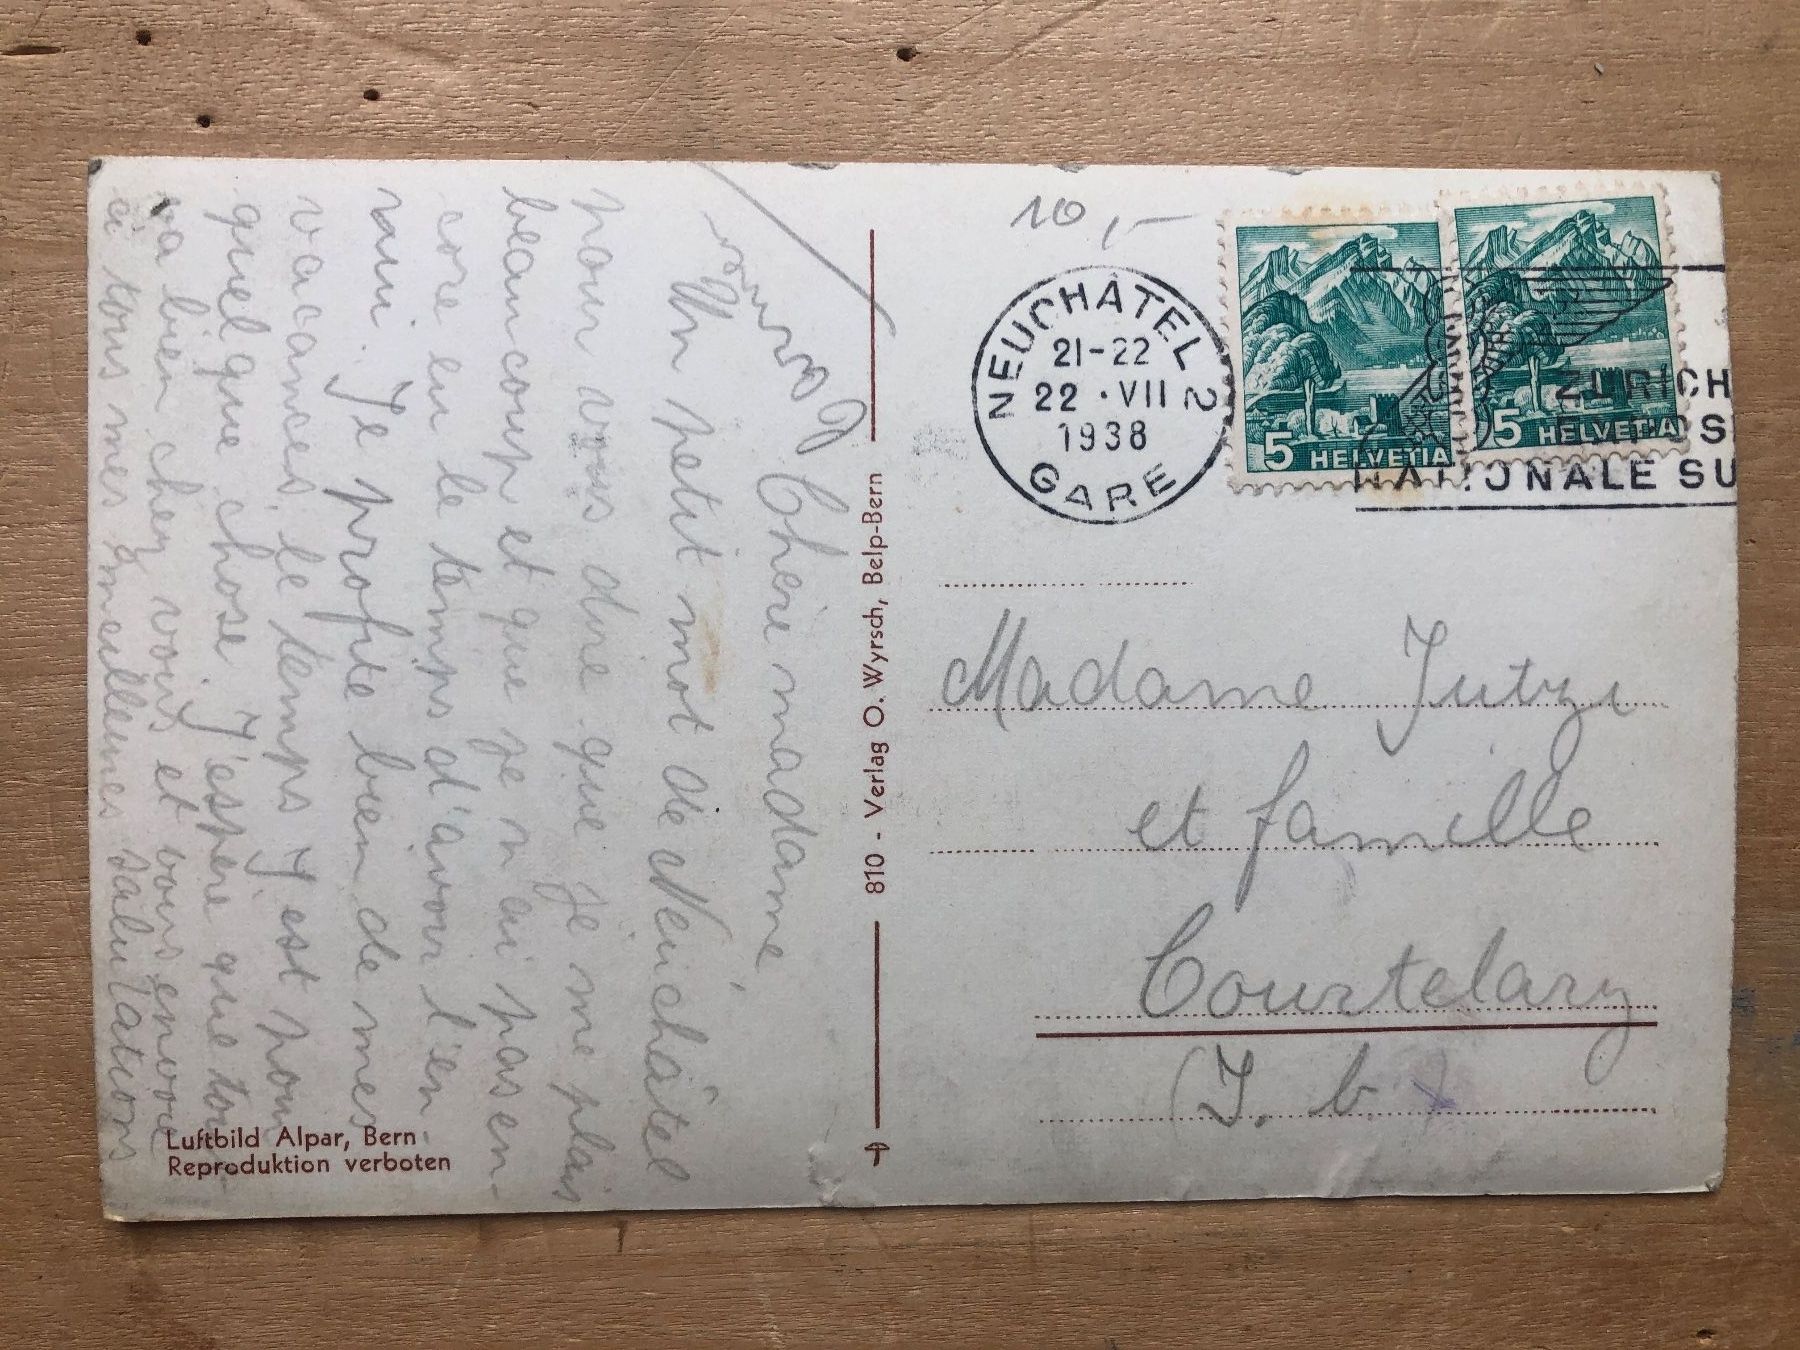 Chère madame,
Un petit mot de Neuchâtel
pour vous dire que je me plais
beaucoup et que je n'ai pas en-
core eu le temps d'avoir l'en
nui. Je profite bien de mes
vacances, le temps y est pour
quelque chose. J'espère que tou
va bien chez vous et vous envoie
à tous mes meilleures salutations
810 - Verlag O. Wyrsch, Belp-Bern
Luftbild Alpar, Bern
Reproduktion verboten
10,-
NEUCHÂTEL 2
21-22
22 · VII
1938
GARE
5 HELVETIA
5 HELVETIA
ZURICH
NATIONALE SU
Madame Jutzi
et famille
Courtelary
(J. b.)